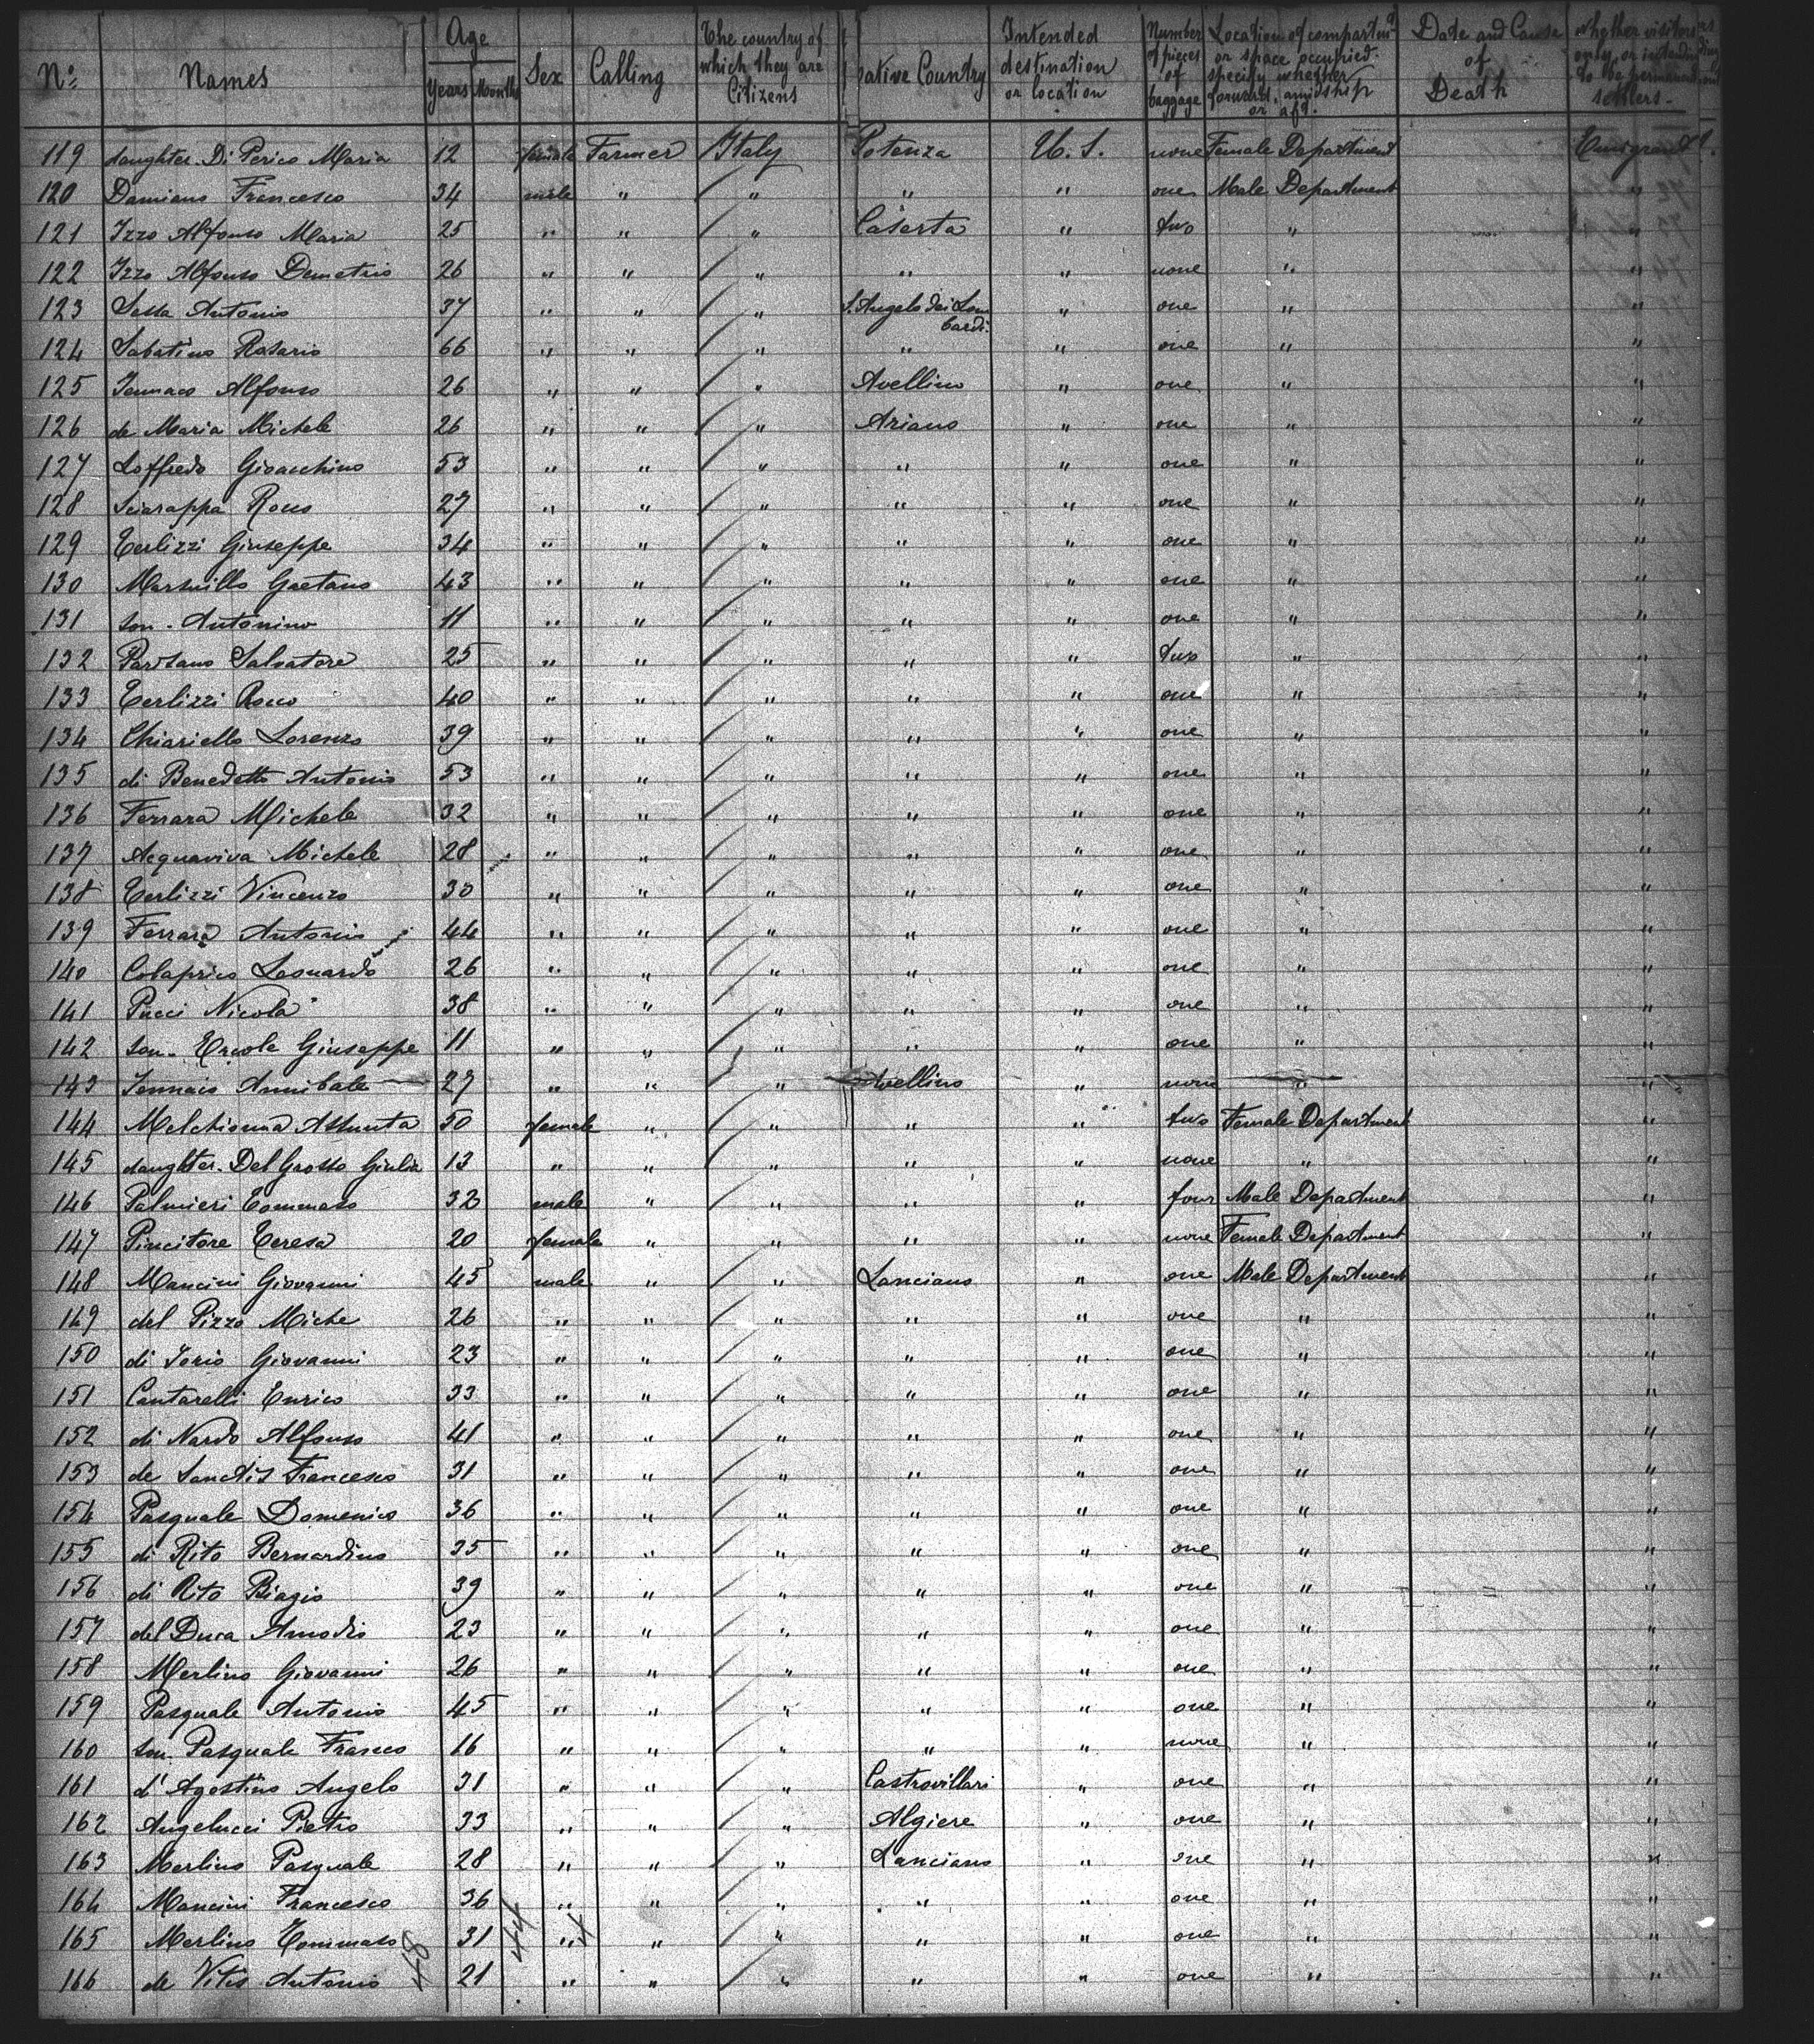 No. Names Age Years Months Sex Calling The country of which they are Citizens Native Country Intended destination or location Number of pieces of baggage Location of compartment or space occupied specify whether forward, amidship or aft. Date and Cause of Death Whether visitors only, or intending to be permanent settlers
119 daughter. Di Perico Maria 12 female Farmer Italy Potenza U. S. none Female Department Emigrant
120 Damiano Francesco 34 male " " " " one Male Department "
121 Izzo Alfonso Maria 25 " " " Caserta " two " "
122 Izzo Alfonso Demetrio 26 " " " " " none " "
123 Sessa Antonio 37 " " " S. Angelo dei Lombardi " one " "
124 Sabatino Rosario 66 " " " " " one " "
125 Alfonso 26 " " " Avellino " one " "
126 de Maria Michele 26 " " " Ariano " one " "
127 Loffredo Gioacchino 53 " " " " " one " "
128 Sciarappa Rocco 27 " " " " " one " "
129 Terlizzi Giuseppe 34 " " " " " one " "
130 Gaetano 43 " " " " " one " "
131 son - Antonino 11 " " " " " one " "
132 Salvatore 25 " " " " " two " "
133 Terlizzi Rocco 40 " " " " " one " "
134 Chiariello Lorenzo 39 " " " " " one " "
135 di Benedetto Antonio 53 " " " " " one " "
136 Ferrara Michele 32 " " " " " one " "
137 Acquaviva Michele 28 " " " " " one " "
138 Terlizzi Vincenzo 30 " " " " " one " "
139 Ferrara Antonio 44 " " " " " one " "
140 Colaprico Leonardo 26 " " " " " one " "
141 Pucci Nicola 38 " " " " " one " "
142 son - Ercole Giuseppe 11 " " " " " one " "
143 Annibale 27 " " " Avellino " none " "
144 Melchionna Assunta 50 female " " " " two Female Department "
145 daughter. Del Grosso Giulia 13 " " " " " none " "
146 Palmieri Tommaso 32 male " " " " four Male Department "
147 Pincitore Teresa 20 female " " " " none Female Department "
148 Mancini Giovanni 45 male " " Lanciano " one Male Department "
149 del Pizzo Miche 26 " " " " " one " "
150 di Iorio Giovanni 23 " " " " " one " "
151 Cantarelli Enrico 33 " " " " " one " "
152 di Nardo Alfonso 41 " " " " " one " "
153 de Sanctis Francesco 31 " " " " " one " "
154 Pasquale Domenico 36 " " " " " one " "
155 di Rito Bernardino 35 " " " " " one " "
156 di Rito Biagio 39 " " " " " one " "
157 del Duca Amodio 23 " " " " " one " "
158 Merlino Giovanni 26 " " " " " one " "
159 Pasquale Antonio 45 " " " " " one " "
160 son. Pasquale Franco 16 " " " " " none " "
161 d'Agostino Angelo 31 " " " Castrovillari " one " "
162 Angelucci Pietro 33 " " " Algiere " one " "
163 Merlino Pasquale 28 " " " Lanciano " one " "
164 Mancini Francesco 36 " " " " " one " "
165 Merlino Tommaso 31 " " " " " one " "
166 de Vitis Antonio 21 " " " " " one " "
48 44 4